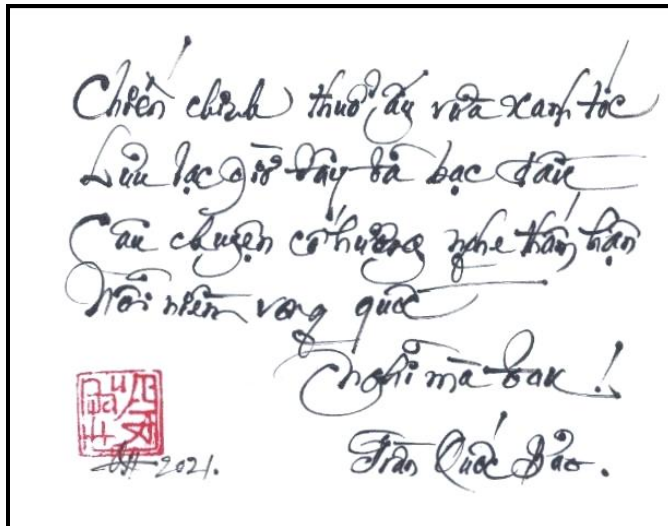 Chiến chinh thuở ấy vừa xanh tóc
Lưu lạc giờ đây đã bạc đầu
Câu chuyện cố hương nghe thấm hận
Nỗi niềm vong quốc
Nghĩ mà đau !
2021.
Trần Quốc Bảo.